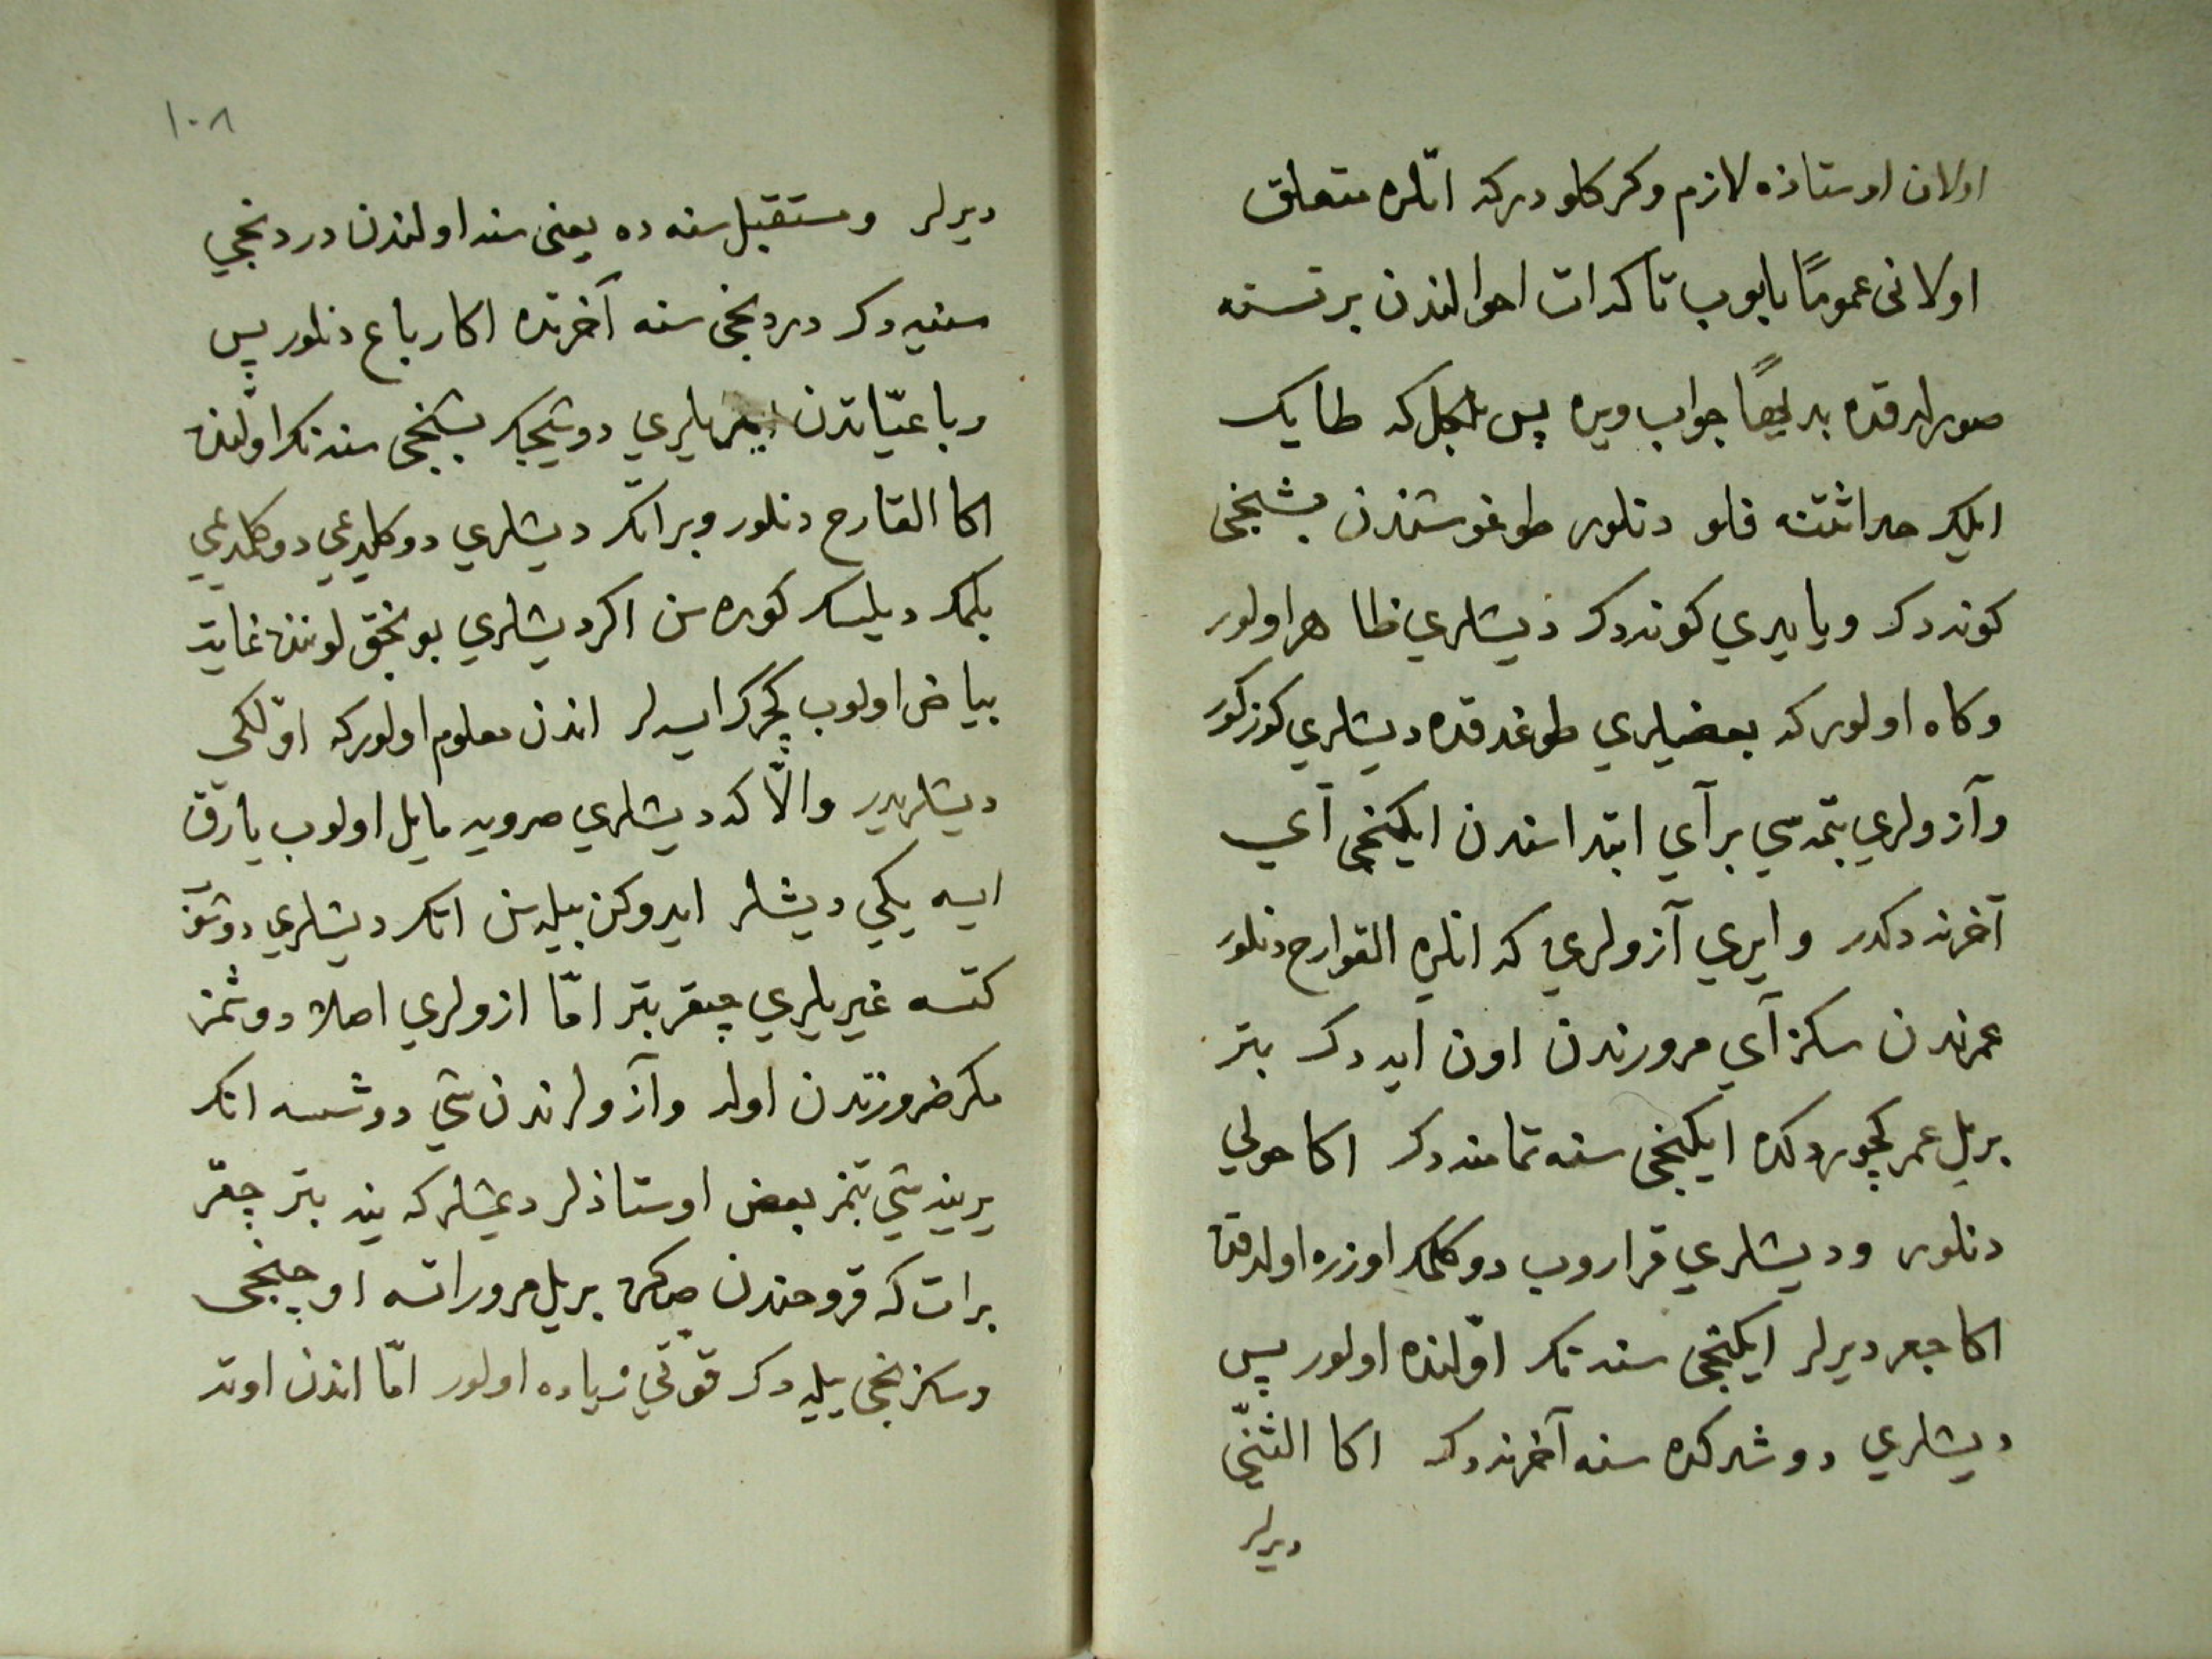 اولان اوستاذه لازم وكركلو دركه انّلره متعلق
اولانى عمومًا بايوب تاكه ات احوالندن بر نسنه
صورلدقده بديهًا جواب ويره پس بلكل كه طايك
ايلك حداثتنه فلو دنلور طوغوشندن بشنجى
كونه دك ويا يدي كونه دك ديشلري ظاهر اولور
وكاه اولور كه بعضيلري طوغدقده ديشلري كوزكور
وآزولري بتمه سي بر آي ابتداسندن ايكنجى آي
آخرنه دكدر وايري آزولري كه انلره القوارح دنلور
عمرندن سكز آي مرورندن اون آيه دك بتر
بر يل عمر كچوردكده ايكنجى سنه تمامنه دك اكا حولي
دنلور وديشلري قراروب دوكلمك اوزره اولدقده
اكا جعر ديرلر ايكنجى سنه نك اوّلنده اولور پس
ديشلري دوشركده سنه آخرنه دك اكا الثنىّ
ديرلر
١٠٨
ديرلر ومستقبل سنه ده يعنى سنه اولندن دردنجي
سنه يه دك دردنجى سنه آخرنده اكا رباع دنلور پس
رباعيّاتدن دوشيجك بشنجى سنه نك اوّلنده
اكا القارح دنلور وبر اتك ديشلري دوكليدعي دوكلمدعي
بلمك ديلسك كوره سن اكر ديشلري بونجق لوننده غايت
بياض اولوب كچرك ايسه لر اندن معلوم اولور كه اوّلكى
ديشلريدر والّا كه ديشلري صرويه مايل اولوب يارق
ايسه يكي ديشلر ايدوكن بيله سن اتك ديشلري دوشر
كتسه غيريلري چيقر بتر امّا ازولري اصلا دوشمز
مكر ضرورتدن اوله وآزولرندن شي دوشسه انك
يرينه شي بتمز بعض اوستاذلر ديمشلر كه ينه بتر چيقر
بر ات كه قروحندن صكره بر يل مرور اتسه اوچنجى
وسكزنجى ييله دك قوّتي زياده اولور امّا اندن اوته